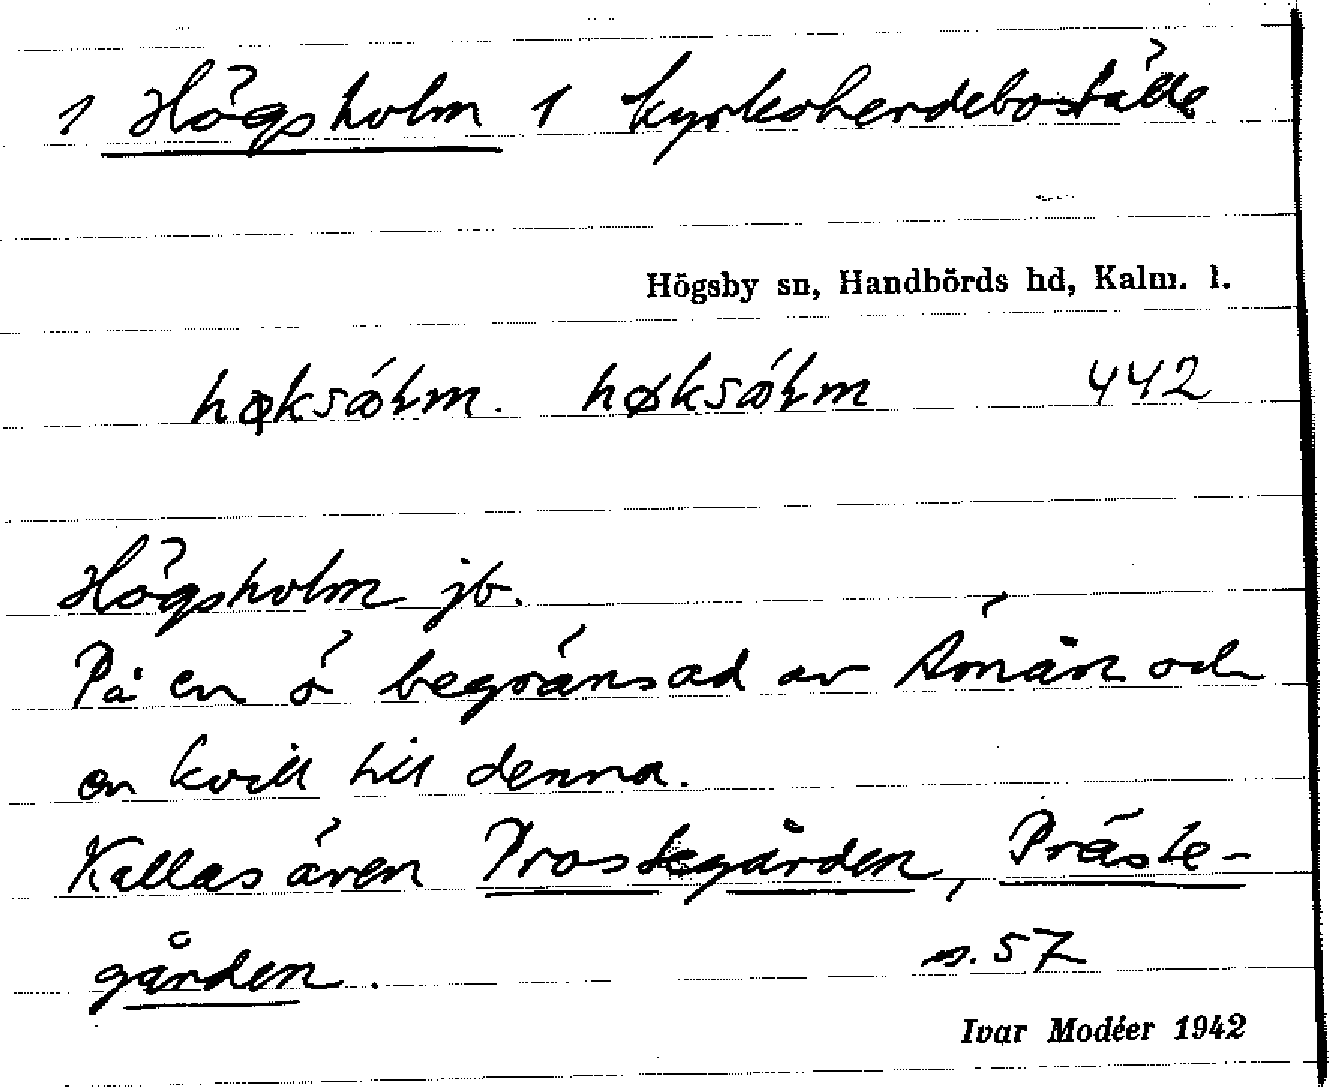 1 Högsholm 1 kyrkoherdeboställe
Högsby sn, Handbörds hd, Kalm. l.
442
Högsholm jb.
På en ö begränsad av Åmån och
en kvill till denna.
Kallas även Prostegården, Präste-
gården. s. 57
Ivar Modéer 1942